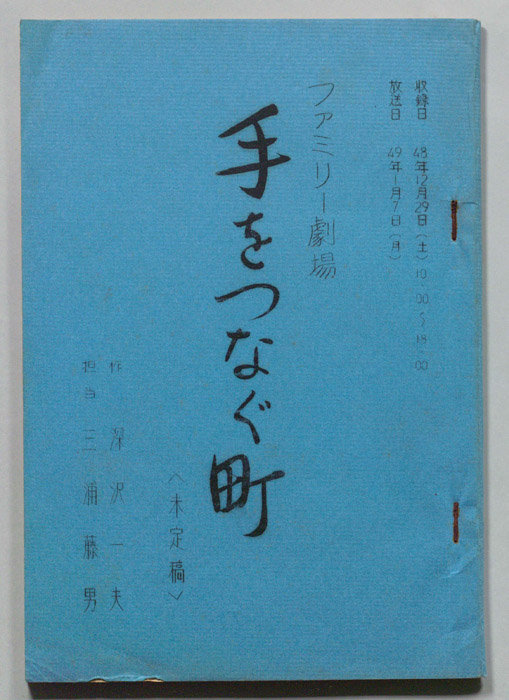 収録日 48年12月29日(土)10:00～18:00
放送日 49年1月7日(月)
ファミリー劇場
手をつなぐ町
<未定稿>
作 深沢一夫
担当 三浦藤男